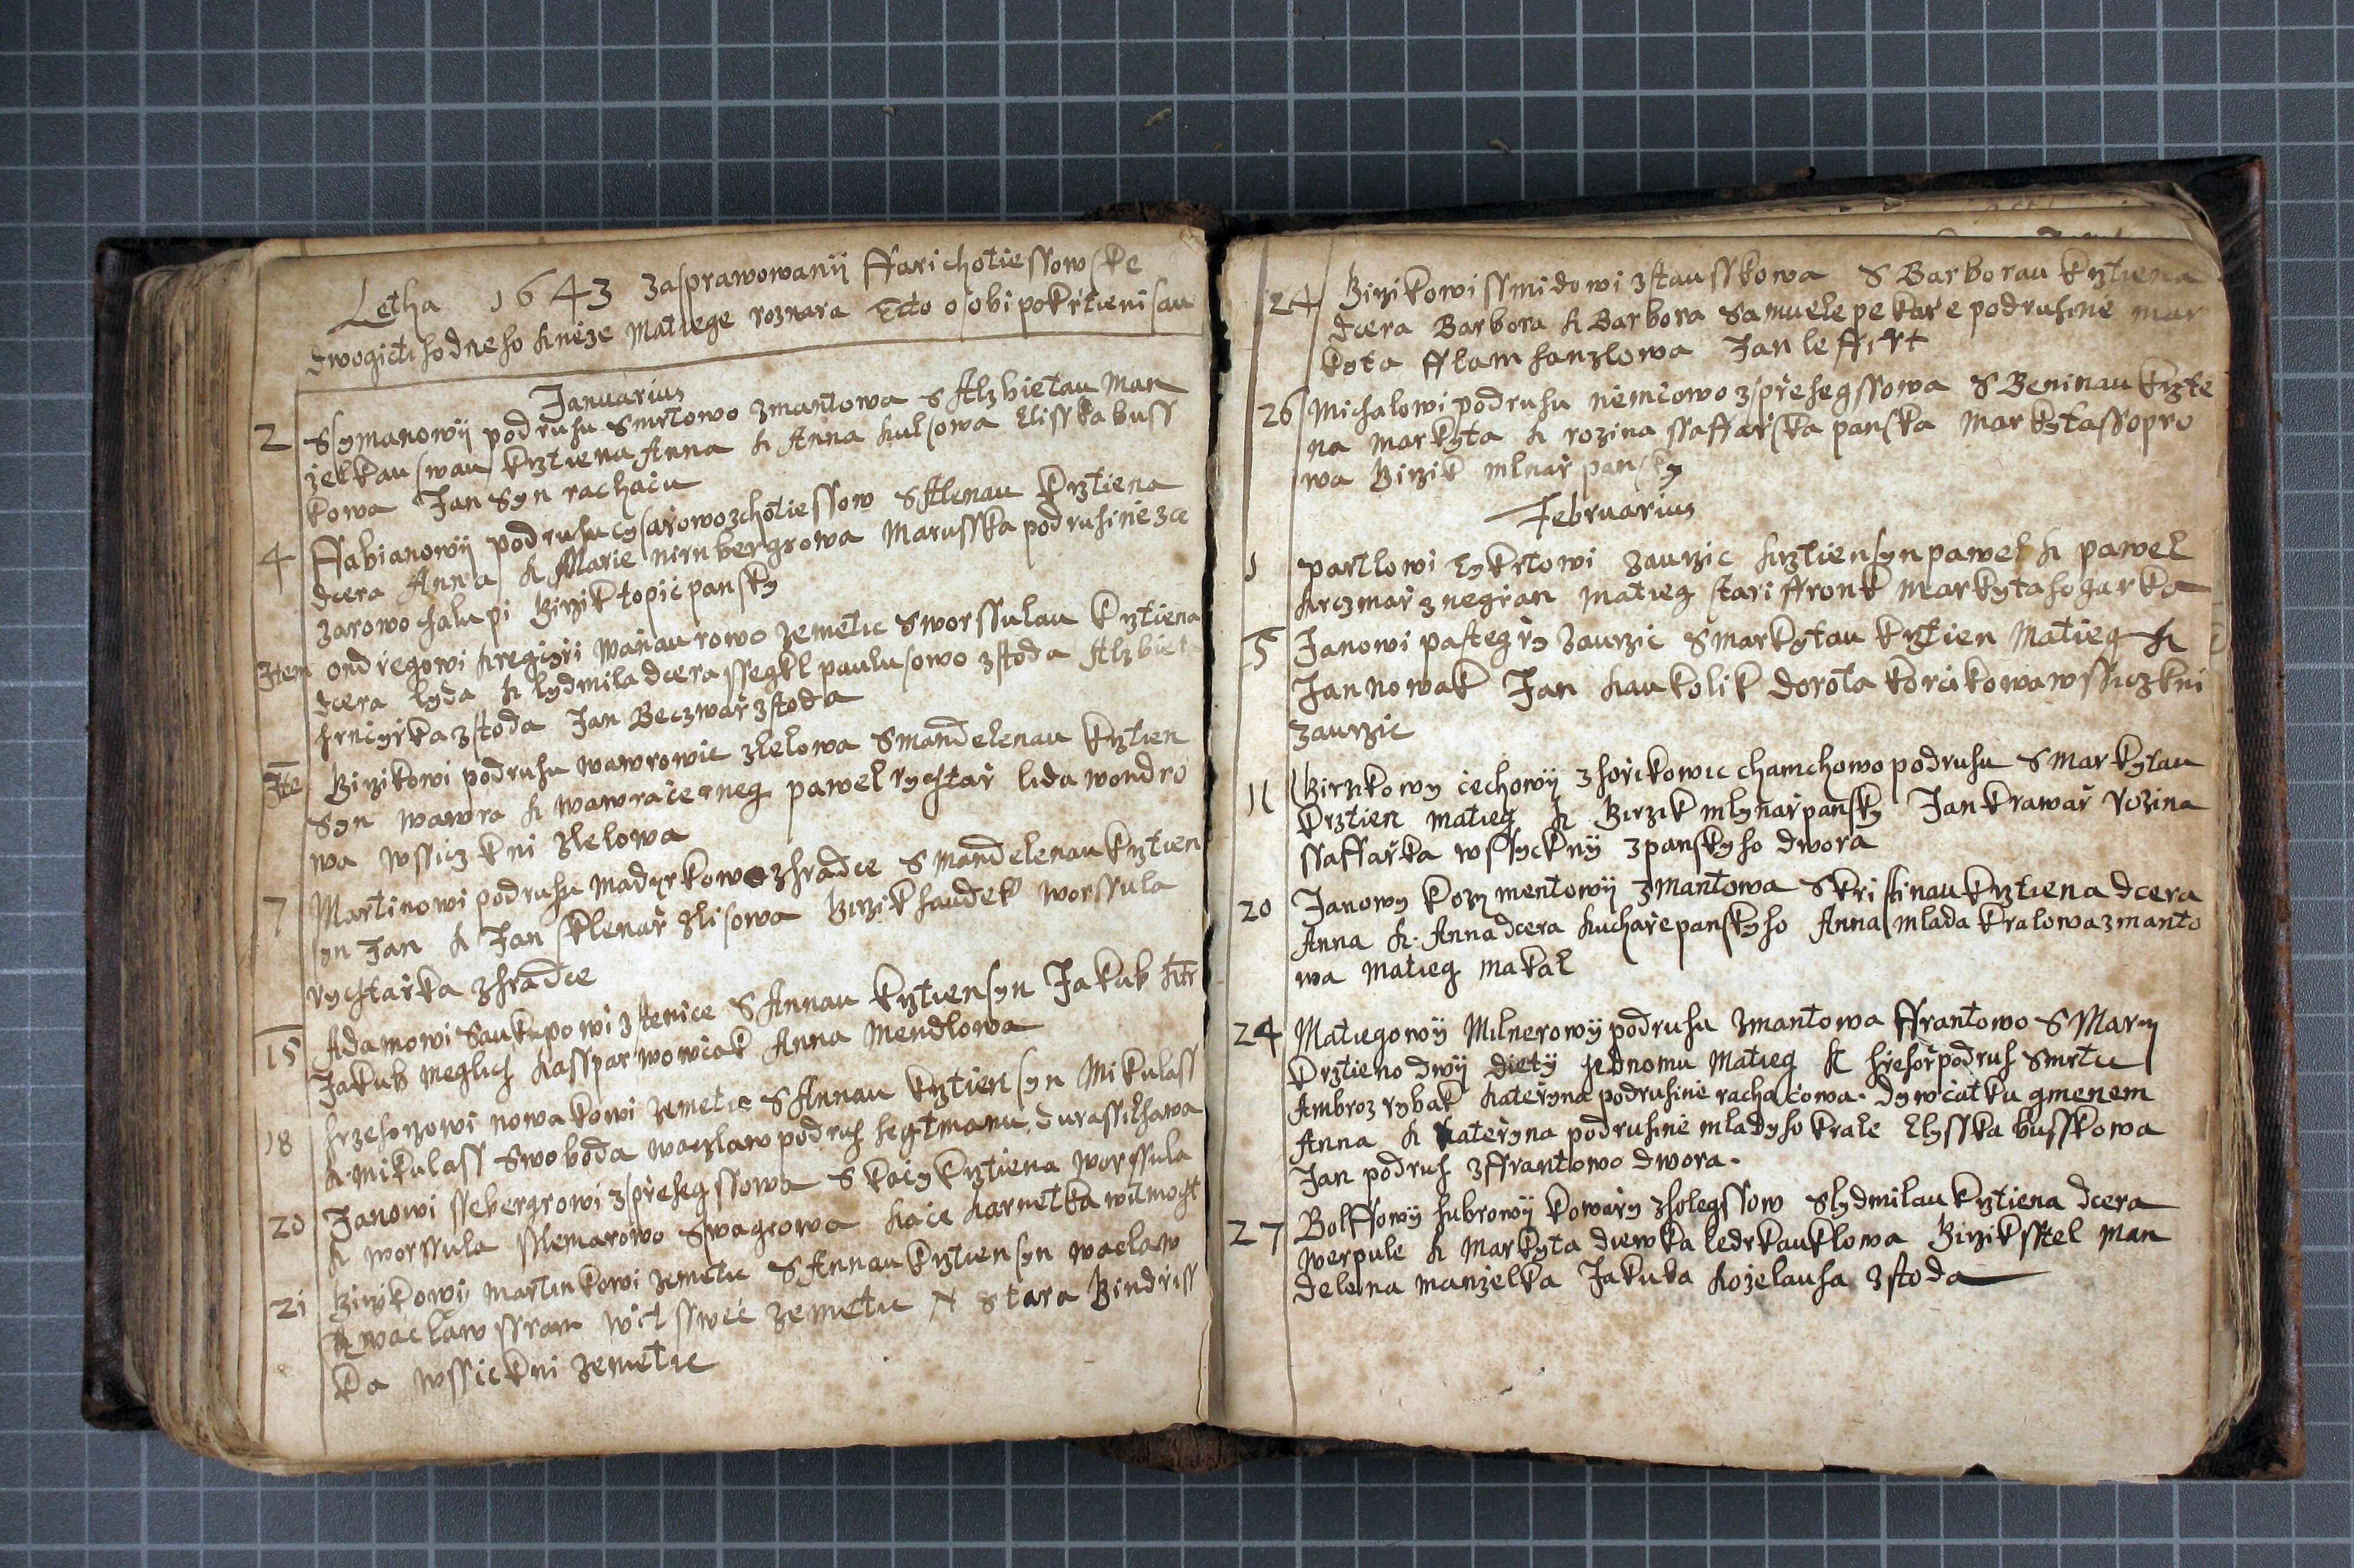 Letha 1643 Zasprawowanij ffarichotiessowske
dwogicti hodneho kněze Matiege roznara Tito osobi pokřtieni sau
Januarius
2 Symanowij podruhu Smrtowo zmantowa S Alzbietau Man
želkau swau krztiena Anna K Anna kulsowa Elisska buss
kowa Jan Syn rachaču
4 ffabianowij podruhu cysařowo zchotiessow S Alenau krztiena
dcera Anna K Marie nirnbergrowa Marusska podruhine zce
zarowo chalupi Birzik topič pansky
Item ondřegowi kregčiři Waňaurowo zemetic Sworssulau krztiena
dcera lyda K lydmila dcera ssegkl paulusowo zstoda Alzbieta
hrnčyřka zstoda Jan Beczwař zstoda
Ite Birzikowi podruhu wawrowic zlelowa Smandelenau krztien
Syn wawra K wawrače neg pawel rychtař lida wondro
wa wssiczkni zlelowa
7 Martinowi podruhu madyrkowo zhradce Smandelenau krztien
syn Jan K Jan sklenař zlisowa Birzik haudek worssula
rychtařka zhradce
15 Adamowi Saukupowi zstenice S Annau krztien syn Jakub kmtr
Jakub meglich kasspar wowčak Anna Mendlowa
18 hrzehorzowi nowakowi zemetic S Annau krztien syn Mikulass
K mikulass Swoboda waczlaw podruh hegtmanu durassilhawa
20 Janowi ssebergrowi zpřehegssowa S kačy krztiena worssula
K worssula sslemarowo Swagrowa kače karnetka wilmocht
21 Birzikowij martinkowi zemetic S Annau krztien syn waclaw
K waclaw ssram wit sswec zemetic N stara Bindřiss
ka wssickni zemetic
24 Birzikowi ssmidowi zstausskowa S Barborau krztiena
dcera Barbora K Barbora Samuele pekaře podruhine mar
kota fflam hanzlowa Jan leffirt
26 Michalowi podruhu němcowo zpřehegssowa S Beninau krzte
na Markyta K rozina ssaffařska panska Markytassopro
wa Birzik mlnař pansky
Februarius
1 partlowi Eykrtowi zaurzic krztien syn pawel K pawel
krczmař znegřan matieg stari ffronk markyta hogarka
5 Janowi pastegřy zaurzic Smarkytau krztien Matieg K
Jan nowak Jan kaukolik dorota korcikowa wssiczkni
zaurzic
11 Birzikowy čechowij zhořikowic chamchowo podruhu Smarkytau
krztien matieg K Birzik mlynař pansky Jan krawař rozina
ssaffařka wssyckny zpanskyho dwora
20 Janowy kozymentowij zmantowa Skristinau krztiena dcera
Anna K Anna dcera kuchaře panskyho Anna mlada kralowa zmanto
wa matieg makal
24 Matiegowij Milnerowij podruhu zmantowa ffrantowo S Mary
krztieno dwij diety jednomu Matieg K hřehoř podruh Smrtu
Ambroz rybak kateřyna podruhine rachačowa. dywčatku gmenem
Anna K kateřyna podruhine mladyho krale Elysska busskowa
Jan podruh zffrantowo dwora.
27 Bolffowij hubrowij kowařy zholegssow Slydmilau krztiena dcera
werpule K Markyta diewka ledrkauklowa Birzik sstel man
delena manželka Jakuba koželauha zstoda